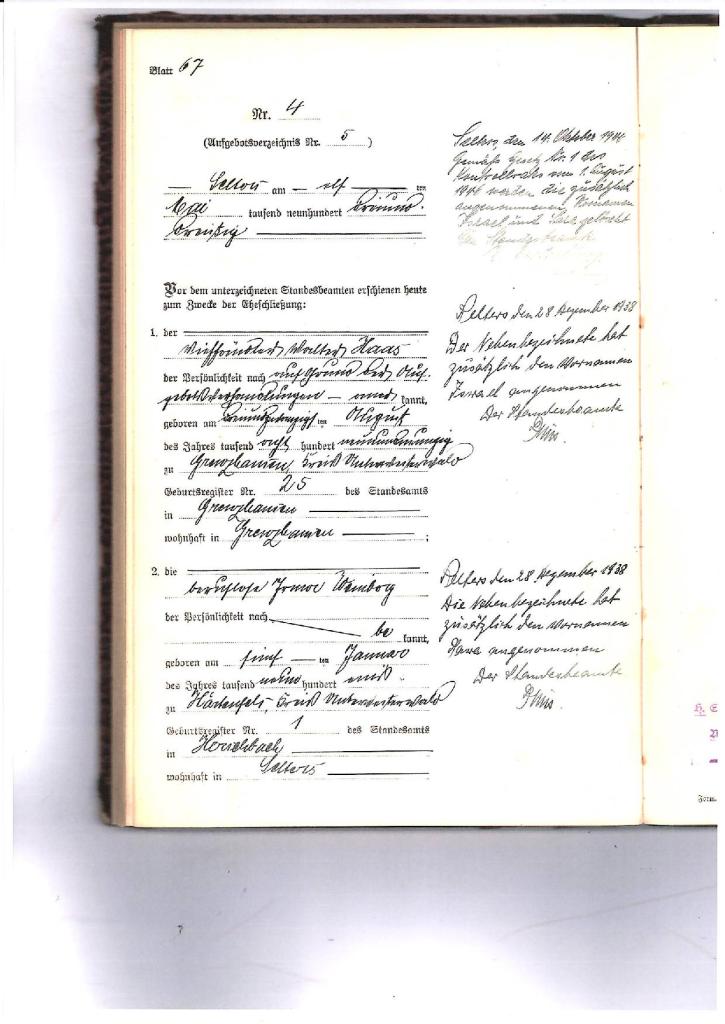 Blatt 67
Nr. 4
(Aufgebotsverzeichnis Nr. 5)
Selters am elf ten
Mai tausend neunhundert dreiund-
dreißig
Vor dem unterzeichneten Standesbeamten erschienen heute
zum Zwecke der Eheschließung:
1. der
Viehhändler Walter Haas
der Persönlichkeit nach auf Grund der Auf-
gebotsverhandlungen aner kannt,
geboren am ten August
des Jahres tausend acht hundert neunundneunzig
zu Grenzhausen, Kreis Unterwesterwald
Geburtsregister Nr. 25 des Standesamts
in Grenzhausen
wohnhaft in Grenzhausen ;
2. die
berufslose Irma
der Persönlichkeit nach
be kannt,
geboren am fünf ten Januar
des Jahres tausend neun hundert
zu Hartenfels, Kreis Unterwesterwald
Geburtsregister Nr. 1 des Standesamts
in Herschbach
wohnhaft in Selters
Selters, den 14. Oktober 1946
Gemäß Gesetz Nr. 1 des
Kontrollrats vom 1. August
1946 werden die zusätzlich
angenommenen Vornamen
Israel und Sara gelöscht
Der Standesbeamte
Selters den 28 Dezember 1938
Der Nebenbezeichnete hat
zusätzlich den Vornamen
Israel angenommen
Der Standesbeamte
Selters den 28 Dezember 1938
Die Nebenbezeichnete hat
zusätzlich den Vornamen
Sara angenommen
Der Standesbeamte
Form.